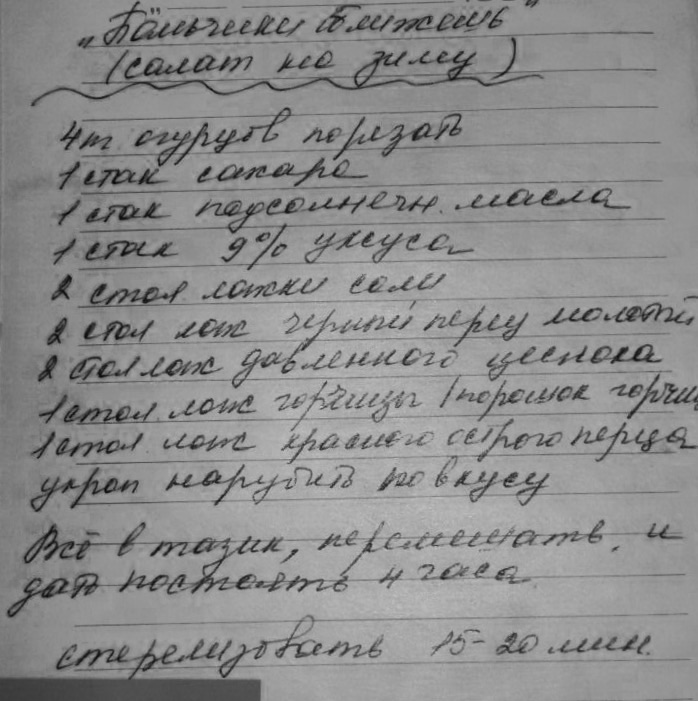 „Пальчики оближешь"
(салат на зиму)
4 кг огурцов порезать
1 стак сахара
1 стак подсолнечн. масла
1 стак 9% уксуса
2 стол ложки соли
2 стол лож черный перец молотый
2 стол лож давленного чеснока
1 стол лож горчицы (порошок горчи
1 стол лож красного острого перца
укроп нарубить по вкусу
Всё в тазик, перемешать и
дать постоять 4 часа
стерелизовать 15-20 мин.